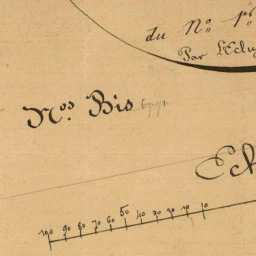 du N.º 1.er
Par
N.os Bis
Ech
100 90 80 70 60 50 40 30 20 10